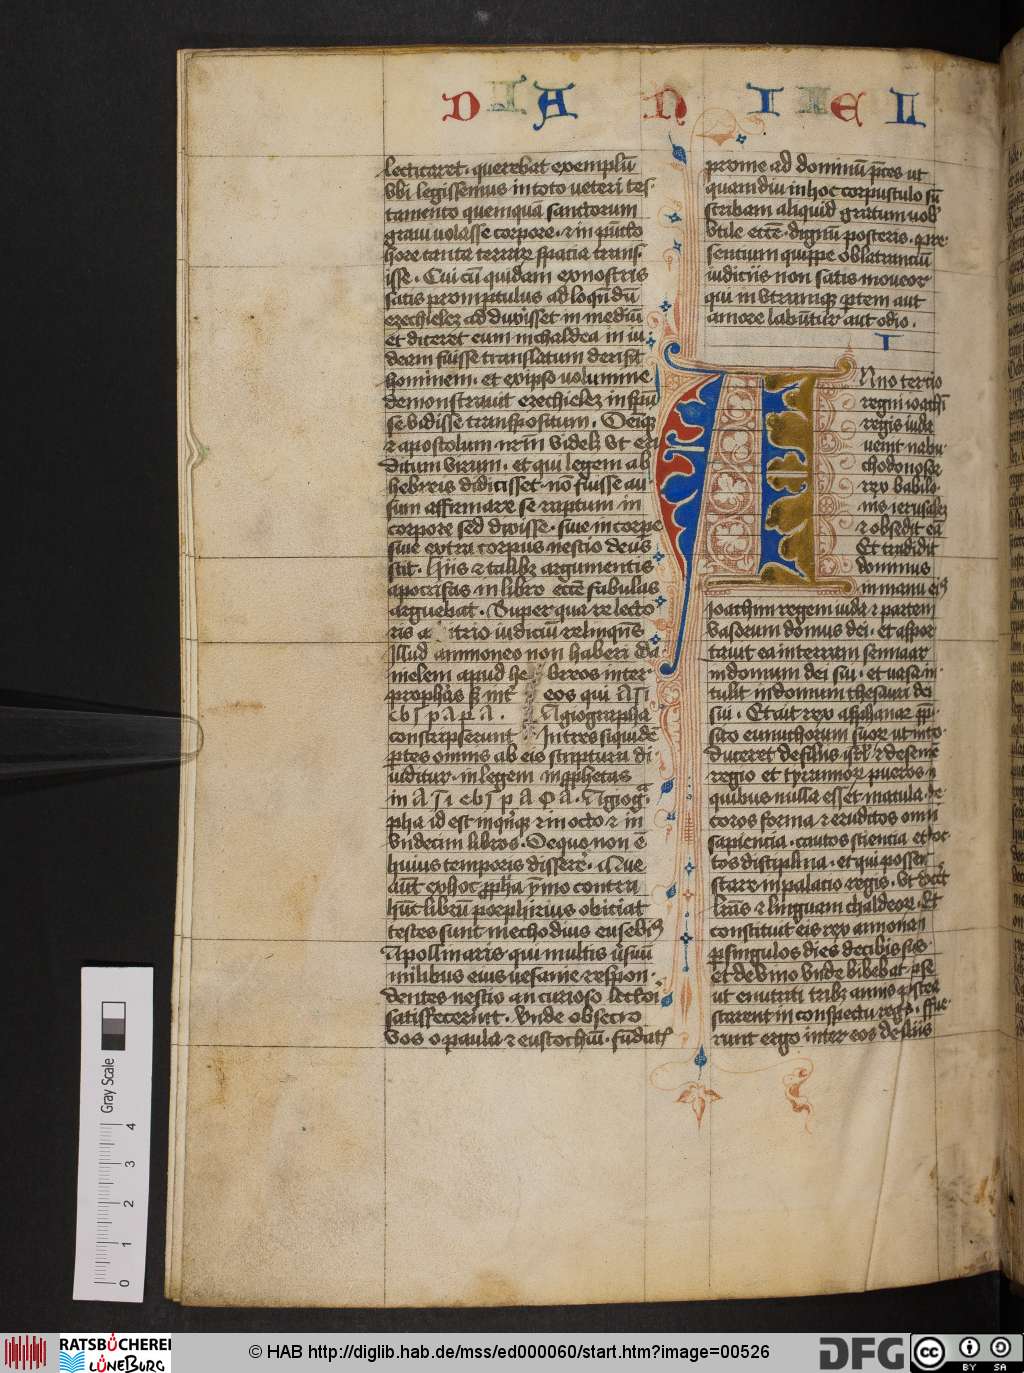 DANIEL
lecticaret. querebat exemplū
vbi legissemus in toto veteri tes-
tamento quemquā sanctorum
graui volasse corpore. et in pūcto
hore tanta terrarꝝ spacia trans-
isse. Cui cū quidam ex nostris
satis promptulus ad loqn̄dū
ezechielem adduxisset in mediū
et diceret eum in chaldea in iu
deam fuisse translatum derisit
hominem. et ex ipso volumine
demonstrauit ezechielem in spū
se vidisse transpositum. Deiqꝫ
et apostolum nrm̄ videlꝫ vt eru
ditum virum. et qui legem ab
hebreis didicisset. nō fuisse au-
sum affirmare se raptum in
corpore sed dixisse. siue in corpe
siue extra corpus nescio deus
scit. Hiis et talibꝫ argumentis
apocrifas in libro eccē fabulas
arguebat. Super qua re lecto
ris a itrio iudiciū relinquēs
Illud ammoneo non haberi da
nielem apud he breos inter
prophetas sꝫ int eos qui ΑΓΙ
Agiographa
conscripserunt In tres siquidē
ptes omnis ab eis scriptura di
uiditur. in legem in ꝓphetas
in Agiogra
pha id est in qnqꝫ et in octo et in
vndecim libros. De quo non ē
huius temporis disserere. Que
aūt ex hoc ꝓpha ymo contra
hūc librū porphirius obiciat
testes sunt mechodius eusebius
Apollinaris qui multis versuū
milibus eius vesanie respon-
dentes nescio an curioso lectori
satisfecerint. vnde obsecro
vos o paula et eustochiū. fūdatis
prome ad dominū p̄ces ut
quamdiu in hoc corpusculo sū
scribam aliquid gratum vob
vtile eccē. dignū posteris. pre-
sentium quippe oblatrantiū
iudiciis non satis moueor
qui in vtramqꝫ ptem aut
amore labūtur aut odio.
I
Anno tercio
regni ioachī
regis iuda
venit nabu
chodonosor
rex babilo-
nis ierusalem
et obsedit eā
Et tradidit
dominus
in manu eius
Ioachim regem iuda et partem
vasorum domus dei. et aspor
tauit ea in terram sennaar
in domum dei sui. et vasa in-
tulit in domum thesauri dei
sui. Et ait rex asphanaꝝ ppō-
sito eunuchorum suoꝝ ut intro-
duceret de filiis isrl et de semine
regio et tyrannoꝝ pueros i
quibus nulla esset macula. de-
coros forma et eruditos omni
sapiencia. cautos sciencia et doc-
tos disciplina. et qui possent
stare in palacio regis. vt docēt
lrās et linguam chaldeoꝝ. Et
constituit eis rex annonam
p singulos dies de cibis suis.
et de vino vnde bibebat ipse
ut enutriti tribꝫ annis postea
starent in conspectu regis. Fue-
runt ergo inter eos de filiis
Gray Scale
0 1 2 3 4
RATSBÜCHEREI
LÜNEBURG
© HAB http://diglib.hab.de/mss/ed000060/start.htm?image=00526
DFG
cc
BY SA